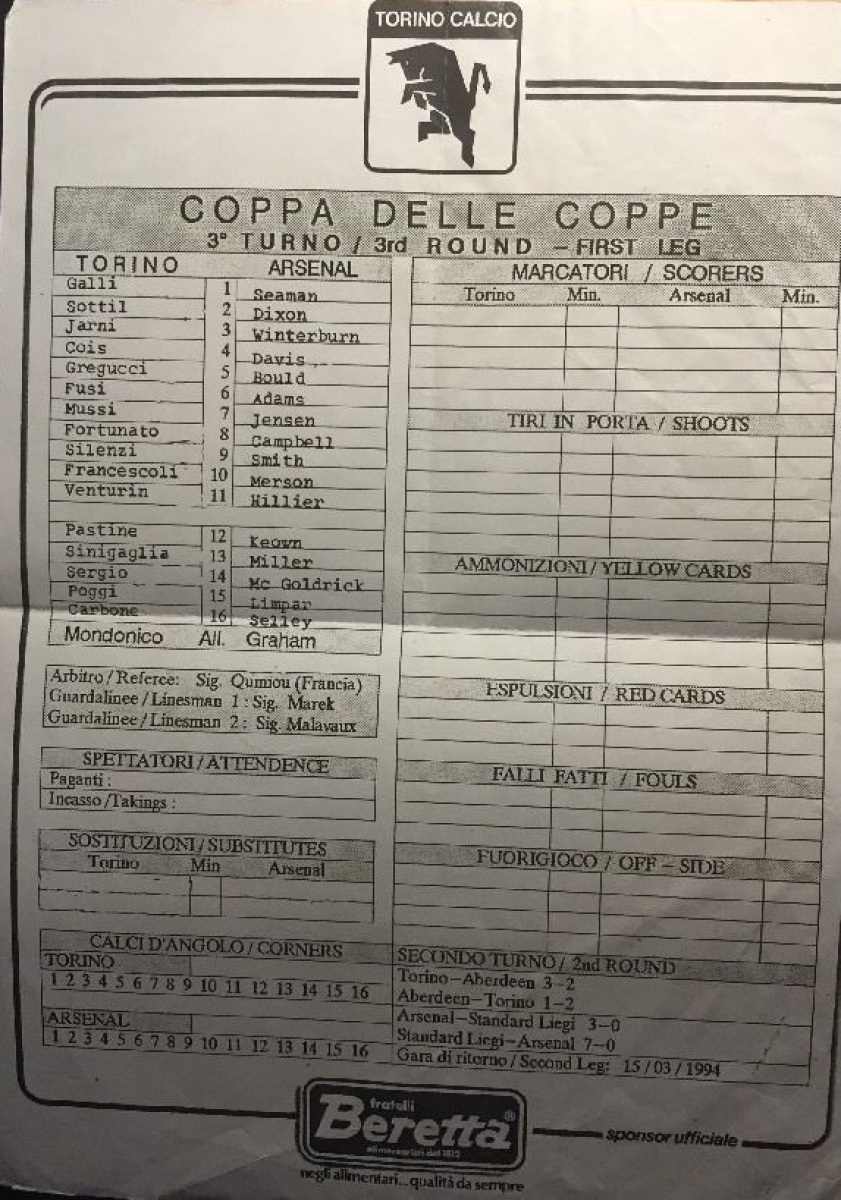 TORINO CALCIO
COPPA DELLE COPPE
3° TURNO / 3rd ROUND – FIRST LEG
TORINO ARSENAL
Galli 1 Seaman
Sottil 2 Dixon
Jarni 3 Winterburn
Cois 4 Davis
Gregucci 5 Bould
Fusi 6 Adams
Mussi 7 Jensen
Fortunato 8 Campbell
Silenzi 9 Smith
Francescoli 10 Merson
Venturin 11 Hillier
Pastine 12 Keown
Sinigaglia 13 Miller
Sergio 14 Mc Goldrick
Poggi 15 Limpar
Carbone 16 Selley
Mondonico All. Graham
Arbitro / Referee: Sig. Qumiou (Francia)
Guardalinee / Linesman 1 : Sig. Marek
Guardalinee / Linesman 2 : Sig. Malavaux
SPETTATORI / ATTENDENCE
Paganti :
Incasso /Takings :
SOSTITUZIONI / SUBSTITUTES
Torino Min Arsenal
CALCI D'ANGOLO / CORNERS
TORINO
1 2 3 4 5 6 7 8 9 10 11 12 13 14 15 16
ARSENAL
1 2 3 4 5 6 7 8 9 10 11 12 13 14 15 16
MARCATORI / SCORERS
Torino Min. Arsenal Min.
TIRI IN PORTA / SHOOTS
AMMONIZIONI / YELLOW CARDS
ESPULSIONI / RED CARDS
FALLI FATTI / FOULS
FUORIGIOCO / OFF – SIDE
SECONDO TURNO / 2nd ROUND
Torino–Aberdeen 3–2
Aberdeen–Torino 1–2
Arsenal–Standard Liegi 3–0
Standard Liegi–Arsenal 7–0
Gara di ritorno / Second Leg: 15 / 03 / 1994
fratelli
Beretta®
alimentaristi dal 1812
sponsor ufficiale
negli alimentari...qualità da sempre